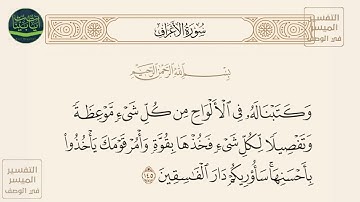 سُورَةُ الأَعْرَافِ
التفسير
الميسر
في الوصف
بِسْمِ اللَّهِ الرَّحْمَٰنِ الرَّحِيمِ
وَكَتَبْنَا لَهُۥ فِى ٱلْأَلْوَاحِ مِن كُلِّ شَىْءٍ مَّوْعِظَةً
وَتَفْصِيلًا لِّكُلِّ شَىْءٍ فَخُذْهَا بِقُوَّةٍ وَأْمُرْ قَوْمَكَ يَأْخُذُوا۟
بِأَحْسَنِهَا ۚ سَأُو۟رِيكُمْ دَارَ ٱلْفَـٰسِقِينَ ١٤٥
التفسير
الميسر
في الوصف